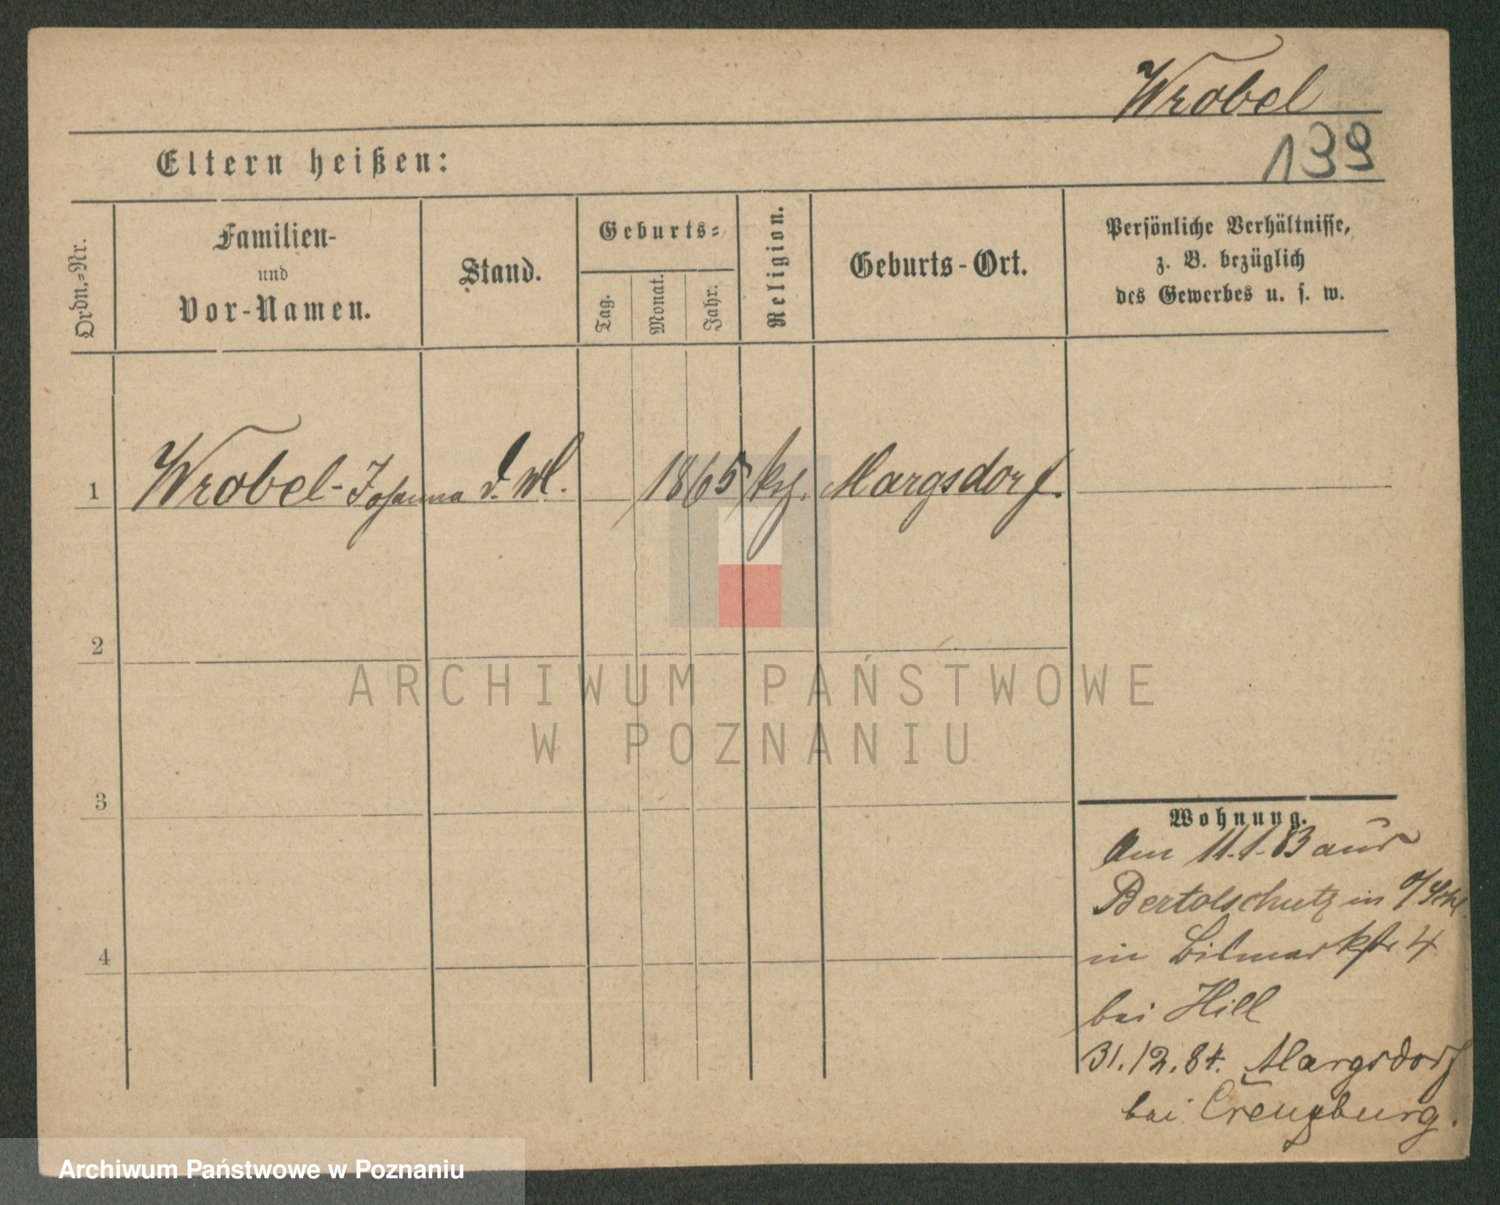 Wrobel
139
Eltern heißen:
Ordn.-Nr.
Familien-
und
Vor-Namen.
Stand.
Geburts-
Tag.
Monat.
Jahr.
Religion.
Geburts-Ort.
Persönliche Verhältnisse,
z. B. bezüglich
des Gewerbes u. s. w.
1 Wrobel-Johanna 1865 Margsdorf.
2
3
4
Wohnung.
Am 11.1.83 aus
Bertolschutz in
in 4
bei Hill
31.12.84. Margsdorf
bei Creuzburg.
ARCHIWUM PAŃSTWOWE
W POZNANIU
Archiwum Państwowe w Poznaniu